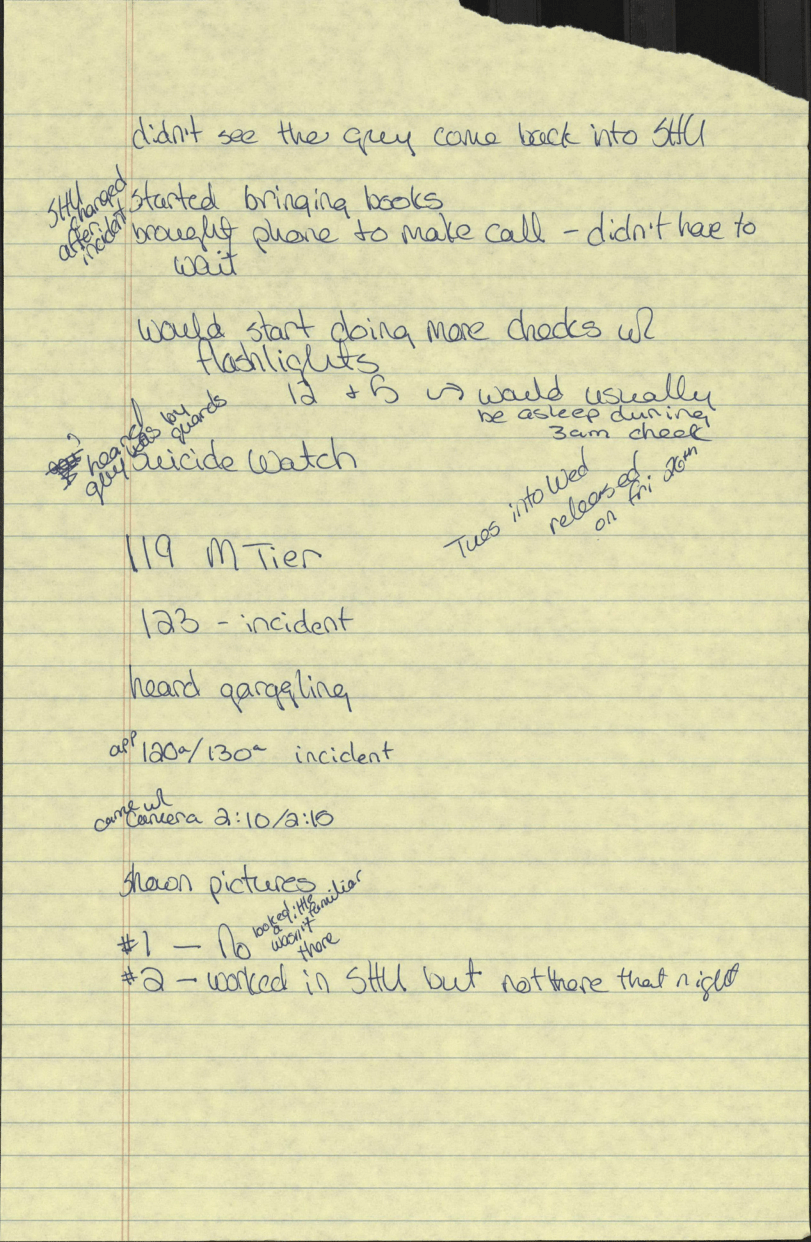 didn't see the guy come back into SHU
SHU
changed
after
incident
started bringing books
brought phone to make call - didn't hae to
wait
would start doing more checks w/
flashlights
12 + 5 → would usually
be asleep during
3am check
heard
guy was by
guards
Suicide Watch
Tues into Wed
released
on Fri 26th
119 M Tier
123 - incident
heard garggling
app 120a/130a incident
came w/
camera 2:10/2:15
shown pictures
#1 - No
looked a little familiar
wasn't
there
#2 - worked in SHU but not there that night